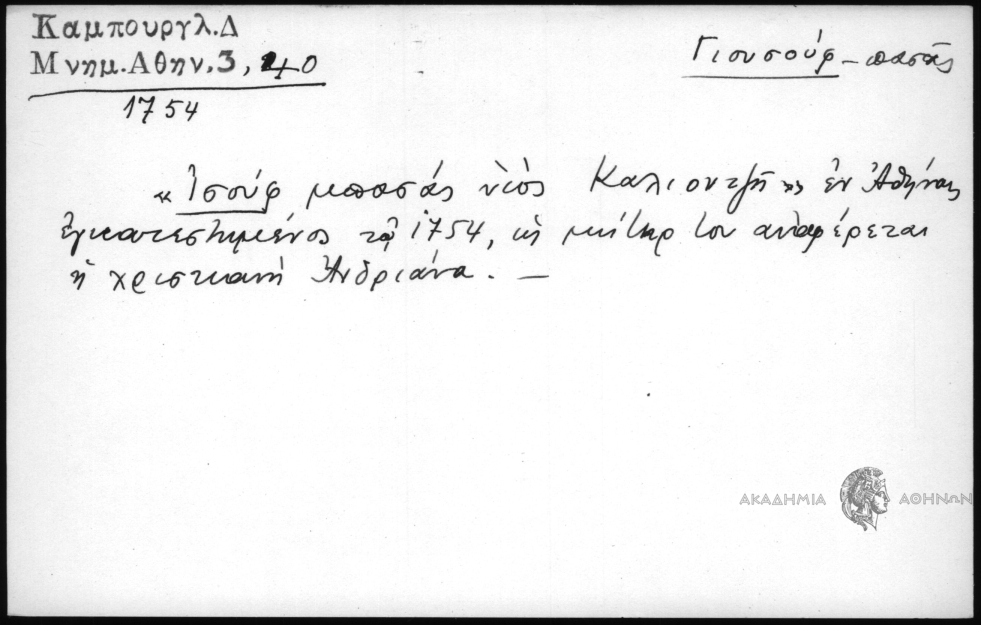 Καμπουργλ.Δ
Μνημ.Αθην.3, 140
1754
Γιουσούφ – πασᾶς
« Ἰσούφ μπασάς υἱὸς Καλιοντζῆ » ἐν Ἀθήναις
ἐγκατεστημένος τῷ 1754, ὡς μήτηρ του αναφέρεται
ἡ χριστιανή Ἀνδριάνα. —
ΑΚΑΔΗΜΙΑ ΑΘΗΝΩΝ